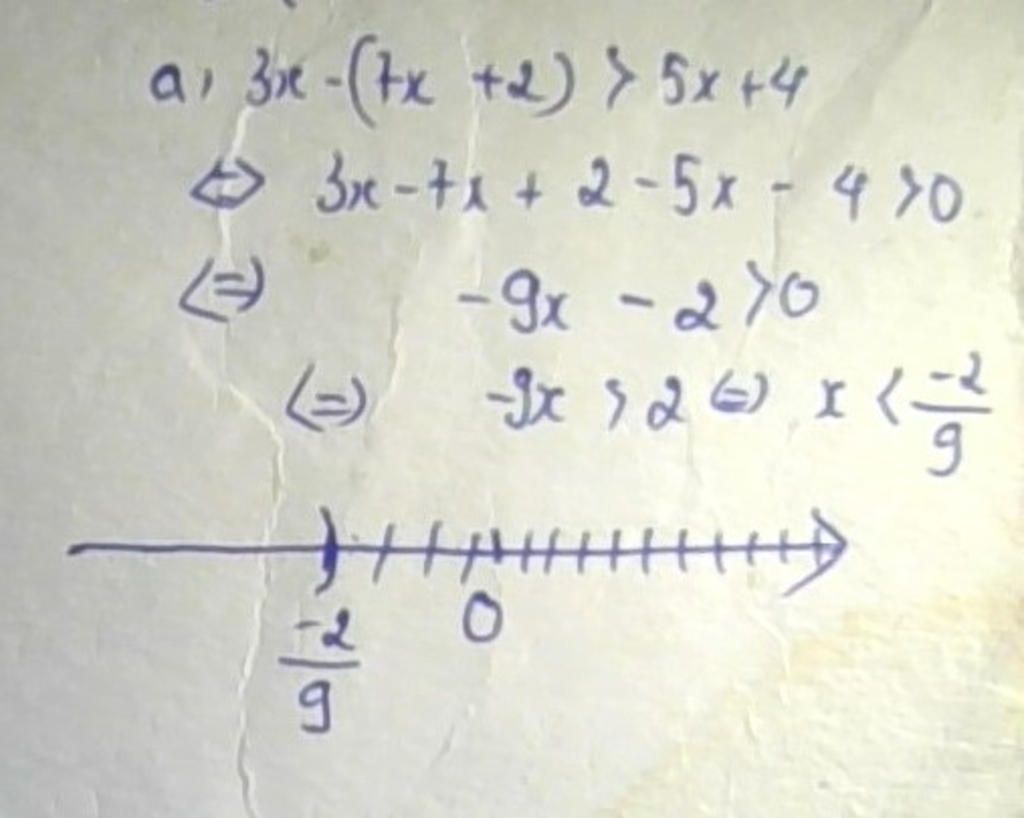 a, 3x - (7x + 2) > 5x + 4
⇔ 3x - 7x + 2 - 5x - 4 > 0
⇔ -9x - 2 > 0
⇔ -9x > 2 ⇔ x < -2/9
-2/9 0